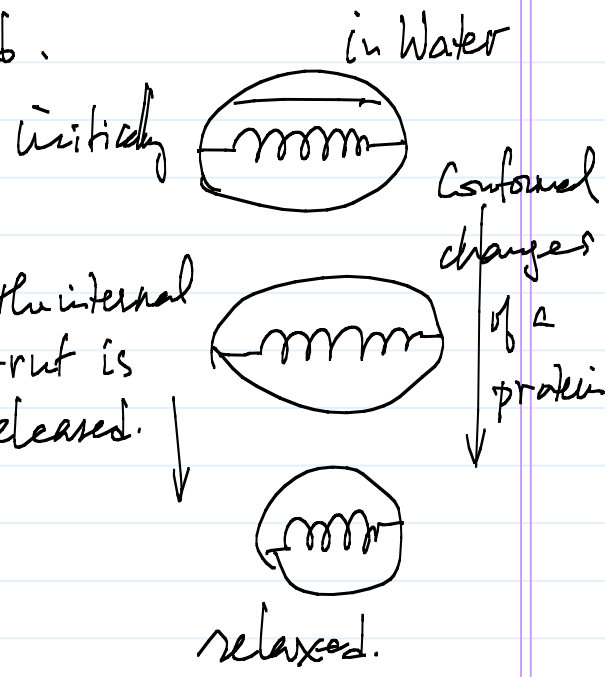 b.
in Water
initially
Conformal
changes
of a
protein
the internal
strut is
released.
relaxed.